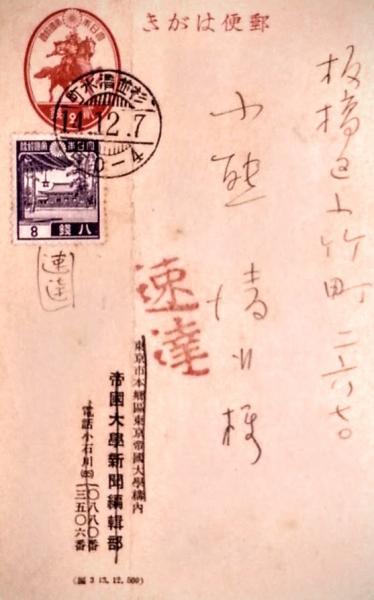 郵便はがき
板橋区小竹町二六七〇
小熊
様
杉並清水町
14.12.7
后0-4
大日本帝國郵便
2
大日本帝國郵便
8 八銭
速達
速達
東京市本郷區東京帝國大學構内
帝國大學新聞編輯部
電話小石川(85)一〇八八〇番
一三五〇六番
(編 3 13. 12. 500)